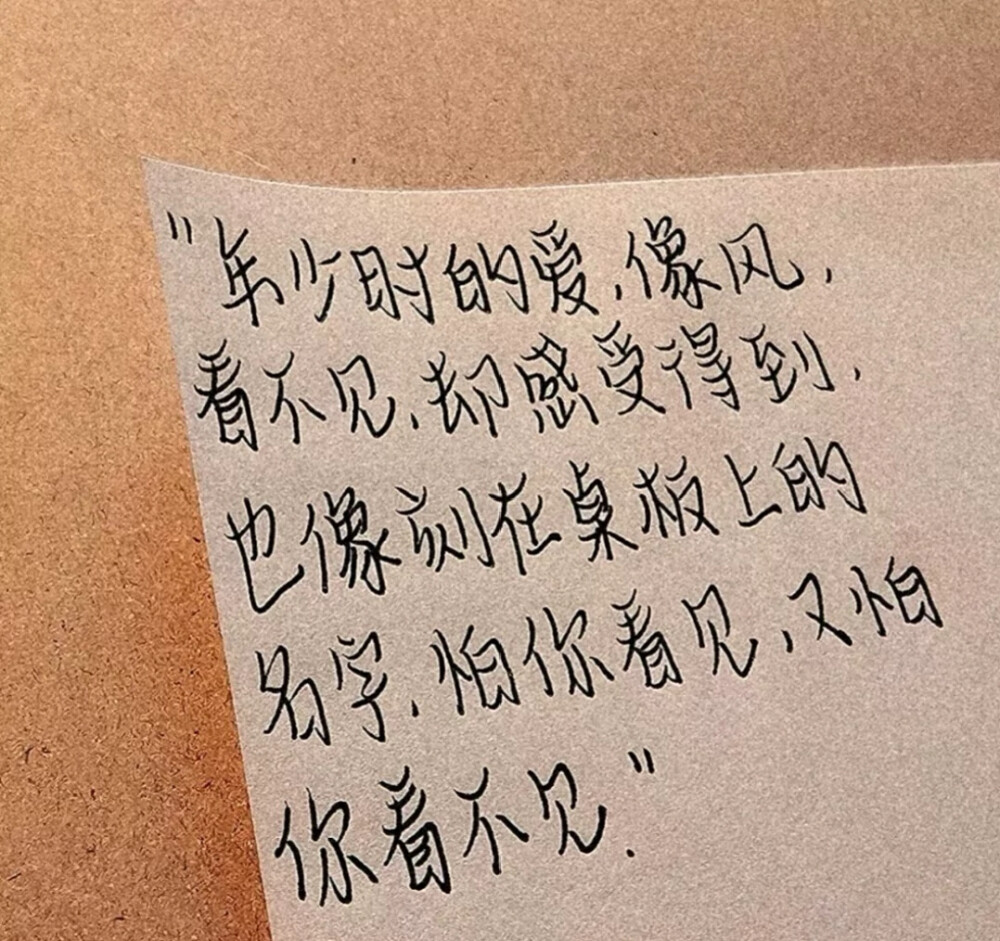 "年少时的爱,像风,
看不见,却感受得到,
也像刻在桌板上的
名字,怕你看见,又怕
你看不见."